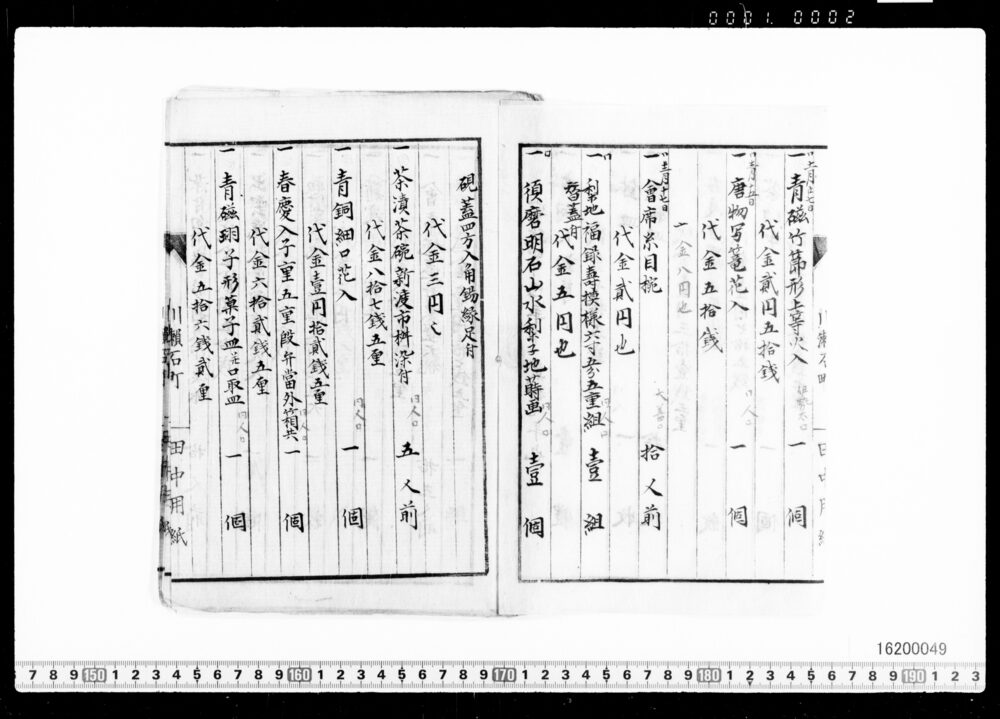 0001 0002
一 青磁竹節形上等火入 一 個
代金貳円五拾銭
一 唐物写籠花入 一 個
代金五拾銭
金八円也
一 會席糸目椀 拾人前
代金貳円也
一 梨地福録壽模様六寸五分五重組 壹 組
替蓋付
代金五円也
一 須磨明石山水梨子地蒔画 壹 個
硯蓋四方入角錫縁足付
代金三円也
一 茶漬茶碗新渡市桝染付 五人前
代金八拾七銭五厘
一 青銅細口花入 一 個
代金壹円拾貳銭五厘
一 春慶入子重五重段弁當外箱共 一 個
代金六拾貳銭五厘
一 青磁形菓子皿 取皿 一 個
代金五拾六銭貳厘
川瀬石町 田中用紙
16200049
7 8 9 150 1 2 3 4 5 6 7 8 9 160 1 2 3 4 5 6 7 8 9 170 1 2 3 4 5 6 7 8 9 180 1 2 3 4 5 6 7 8 9 190 1 2 3